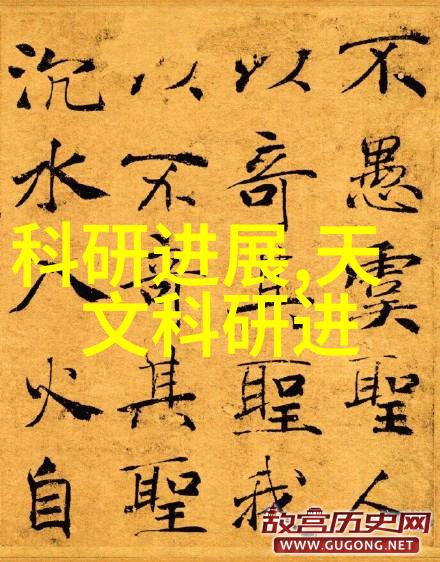 不愚虞聖人
以奇其聖我
以不奇其聖
沉水入火自
科研进展,天
文科研进
故宫历史网
WWW.GUGONG.NET